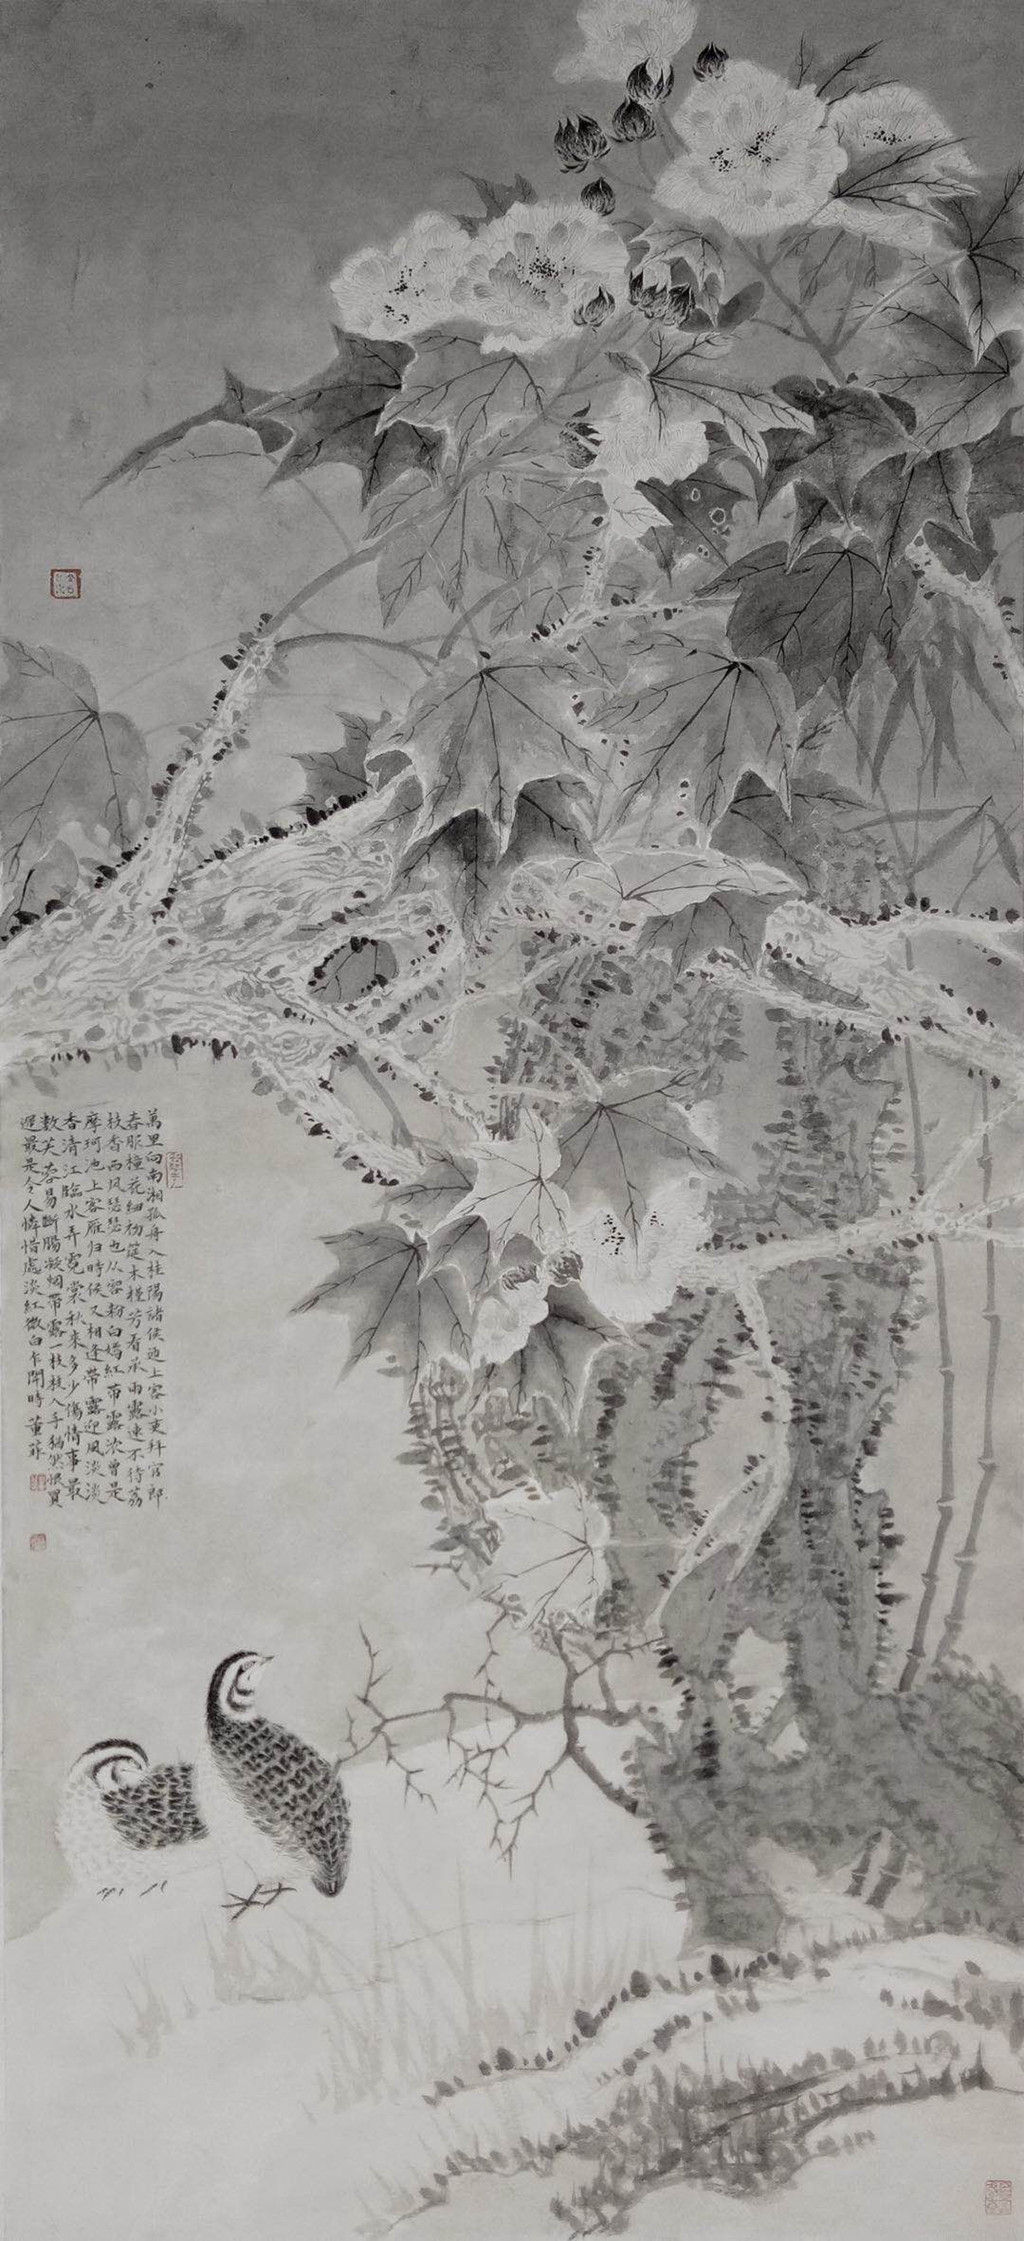 萬里向南湘孤舟入桂陽諸侯迎上客小吏拜官郎
春服橦花細初筵木槿芳看承雨露速不待荔
枝香西风瑟瑟也从容粉白嬌紅带露浓曾是
摩珂池上客雁归時候又相逢带露迎風淡淡
香清江臨水弄霓裳秋來多少傷情事最
數芙蓉易斷腸凝烟带露一枝枝入手猶然恨買
遲最是令人憐惜處淡紅微白乍開時 董菲